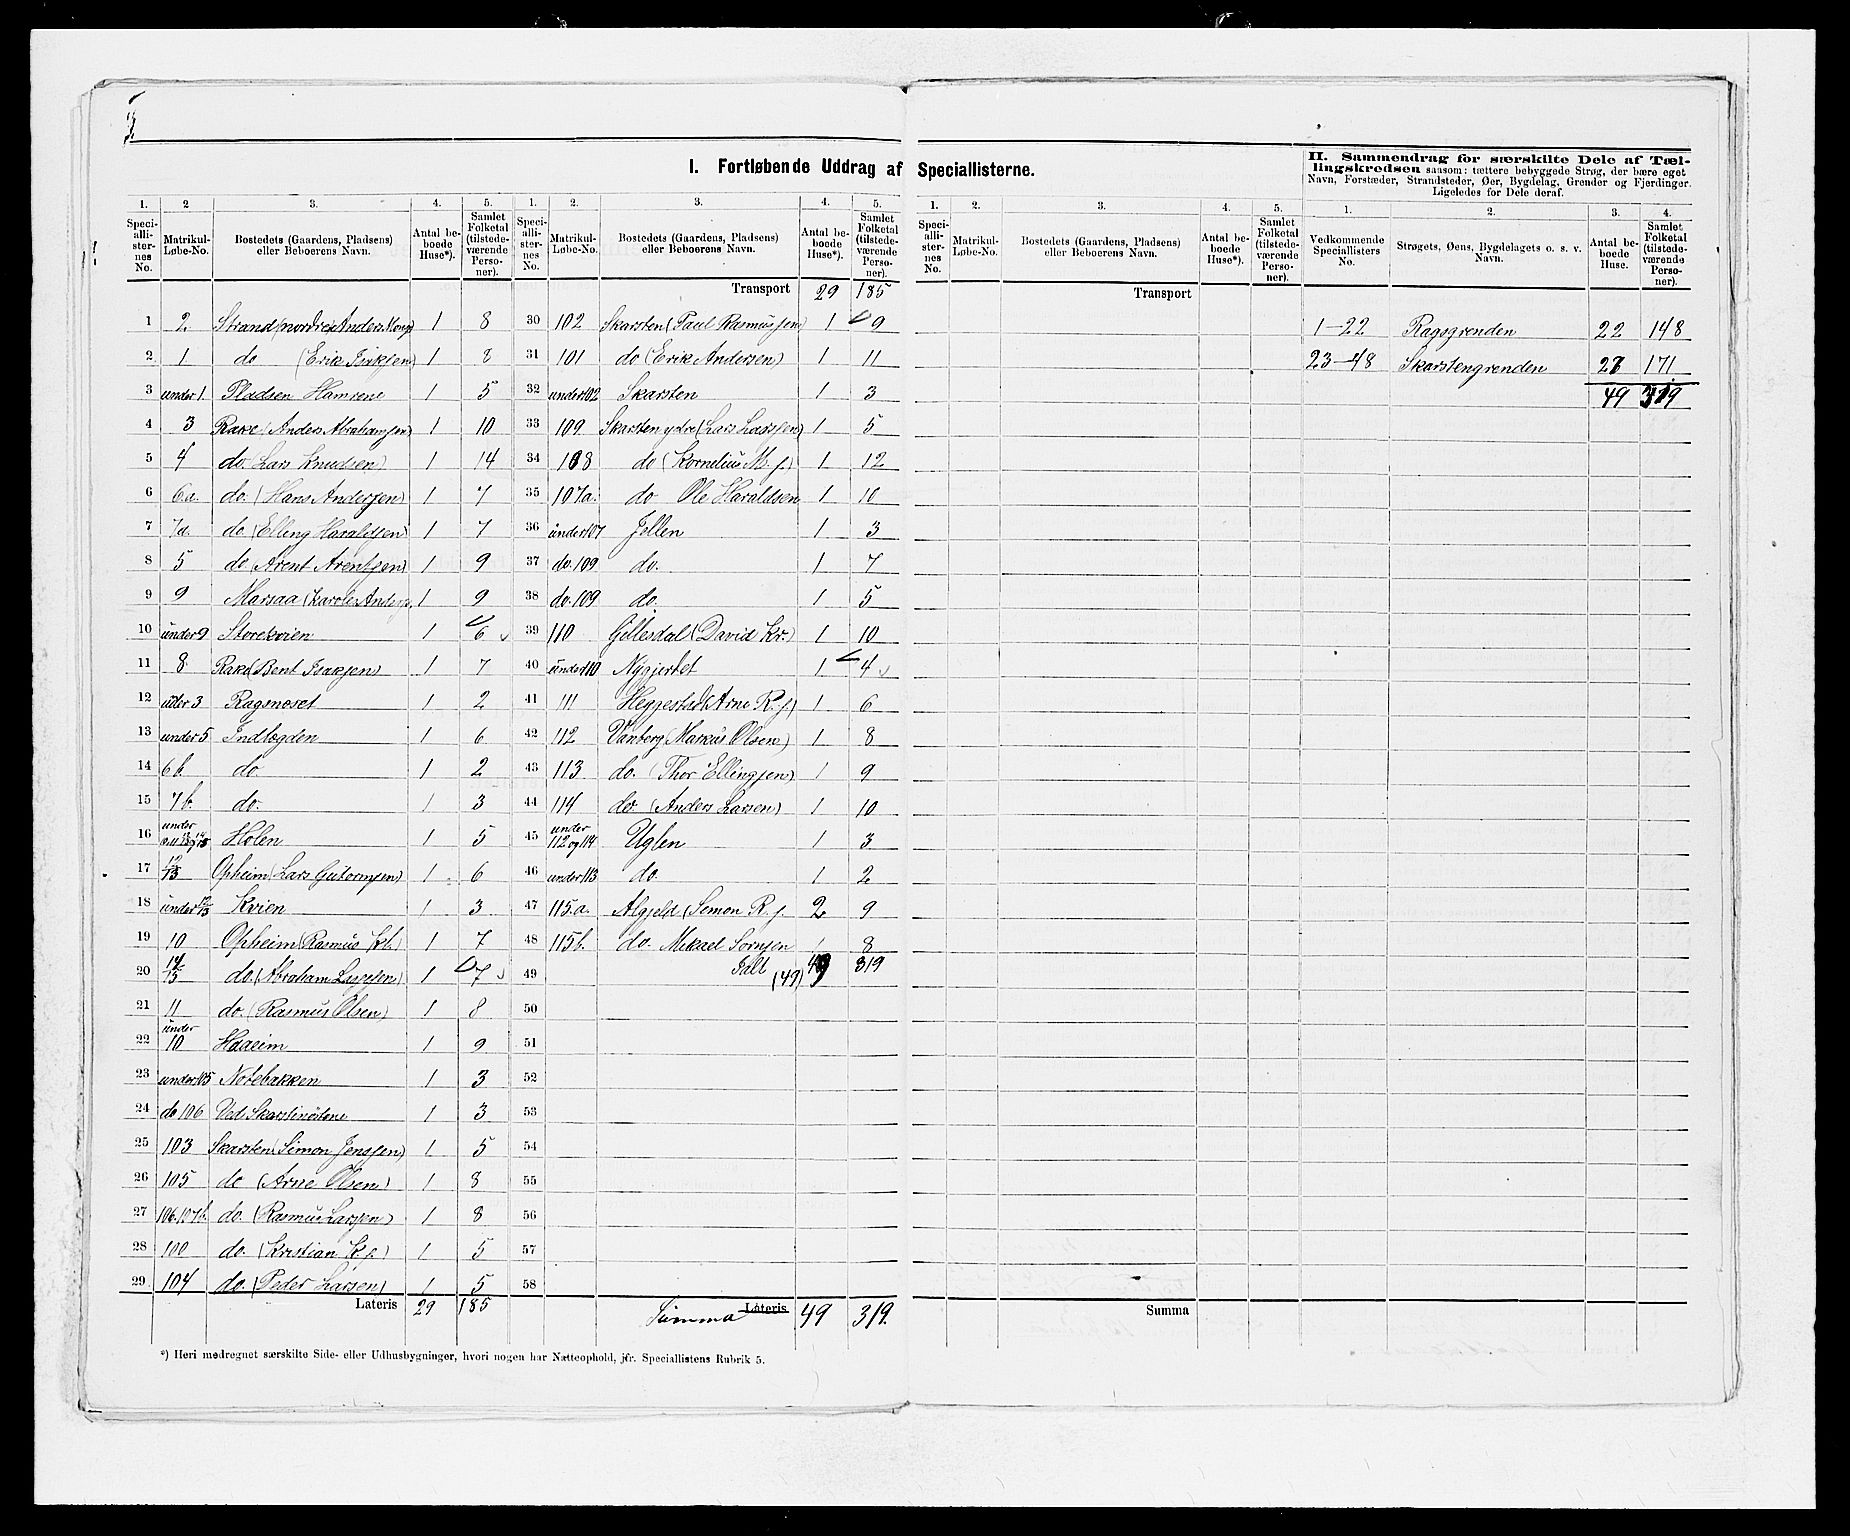 3.
I. Fortløbende Uddrag af Speciallisterne.
II. Sammendrag for særskilte Dele af Tæl-
lingskredsen saasom: tættere bebyggede Strøg, der bære eget
Navn, Forstæder, Strandsteder, Øer, Bygdelag, Grender og Fjerdinger.
Ligeledes for Dele deraf.
1. 2 3. 4. 5. 1. 2. 3. 4. 5. 1. 2. 3. 4. 5. 1. 2. 3. 4.
Speciallisternes No. Matrikul-Løbe-No. Bostedets (Gaardens, Pladsens) eller Beboerens Navn. Antal beboede Huse*). Samlet Folketal (tilstedeværende Personer).
Speciallisternes No. Matrikul-Løbe-No. Bostedets (Gaardens, Pladsens) eller Beboerens Navn. Antal beboede Huse*). Samlet Folketal (tilstedeværende Personer).
Speciallisternes No. Matrikul-Løbe-No. Bostedets (Gaardens, Pladsens) eller Beboerens Navn. Antal beboede Huse*). Samlet Folketal (tilstedeværende Personer).
Vedkommende Speciallisters No. Strøgets, Øens, Bygdelagets o. s. v. Navn. Antal beboede Huse. Samlet Folketal (tilstedeværende Personer).
1 2 Strand (nordre) Anders Mons 1 8
2 1 do (Erik Eriksen) 1 8
3 under 1. Pladsen Hamrene 1 5
4 3 Rake (Anders Abrahamsen) 1 10
5 4 do. (Lars Knudsen) 1 14
6 6a. do. (Hans Andersen) 1 7
7 7a. do (Elling Haraldsen) 1 7
8 5 do (Arent Arentsen) 1 9
9 9 Marsaa (Karole Anders. 1 9
10 under 9 Storekvien 1 6
11 8 Rake (Bent Isaksen) 1 7
12 uder 3 Ragsmoset 1 2
13 under 5 Indlægden 1 6
14 6b. do 1 2
15 7b. do. 1 3
16 under Holen 1 5
17 12/13 Opheim (Lars Guttormsen) 1 6
18 under 12/13 Kvien 1 3
19 10 Opheim (Rasmus Kl.) 1 7
20 14/15 do. (Abraham Lassesen) 1 7
21 11 do. (Rasmus Olsen) 1 8
22 under 10 Haaeim 1 9
23 under 105 Notebakken 1 3
24 do 106 Ved Skarstenøstene 1 3
25 103 Skarsten (Simon Jenssen) 1 5
26 105 do (Arne Olsen) 1 8
27 106.107b. do. (Rasmus Larssen) 1 8
28 100 do. (Kristian K. s.) 1 5
29 104 do. (Peder Larsen) 1 5
Lateris 29 185
Transport 29 185
30 102 Skarsten (Paul Rasmussen) 1 9
31 101 do (Erik Andersen) 1 11
32 under 102 Skarsten 1 3
33 109 Skarsten ydre (Lars Larssen) 1 5
34 108 do (Kornelius M. s.) 1 12
35 107a. do Ole Haraldsen 1 10
36 under 107 Jellen 1 3
37 do. 109 do. 1 7
38 do. 109 do. 1 5
39 110 Gillesdal (David Kr.) 1 10
40 under 110 Nygjertet 1 4
41 111 Heggestad (Arne R. s.) 1 6
42 112 Vanberg (Markus Olsen) 1 8
43 113 do. (Thor Ellingsen) 1 9
44 114 do. (Anders Larsen) 1 10
45 under 112 og 114 Uglen 1 3
46 under 113 do. 1 2
47 115.a. Algjeld (Simon R. s. 2 9
48 115b. do. Mikael Sørnsen 1 8
49 Ialt (49) 49 319
50
51
52
53
54
55
56
57
58
Summa Lateris 49 319.
Transport
Summa
1-22 Ragsgrenden 22 148
23-48 Skarstengrenden 27 171
49 319
*) Heri medregnet særskilte Side- eller Udhusbygninger, hvori nogen har Natteophold, jfr. Speciallistens Rubrik 5.